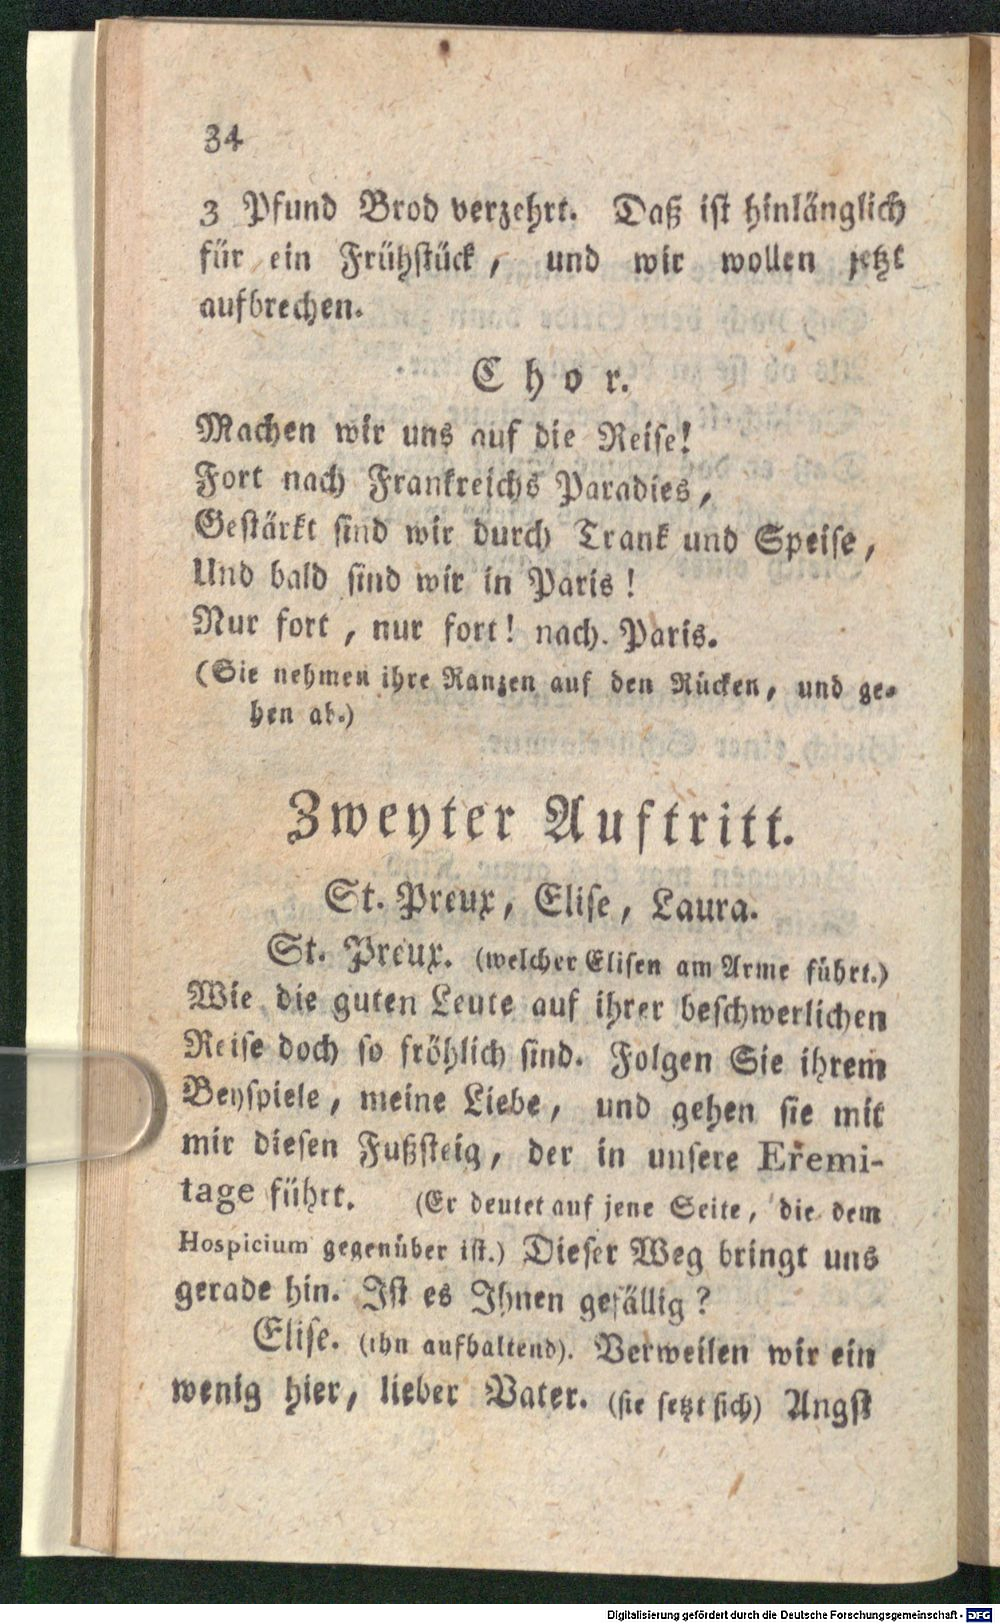 34
3 Pfund Brod verzehrt. Daß ist hinlänglich
für ein Frühstück, und wir wollen jetzt
aufbrechen.
Chor.
Machen wir uns auf die Reise!
Fort nach Frankreichs Paradies,
Gestärkt sind wir durch Trank und Speise,
Und bald sind wir in Paris!
Nur fort, nur fort! nach Paris.
(Sie nehmen ihre Ranzen auf den Rücken, und ge-
hen ab.)
Zweyter Auftritt.
St. Preux, Elise, Laura.
St. Preux. (welcher Elisen am Arme führt.)
Wie die guten Leute auf ihrer beschwerlichen
Reise doch so fröhlich sind. Folgen Sie ihrem
Beyspiele, meine Liebe, und gehen sie mit
mir diesen Fußsteig, der in unsere Eremi-
tage führt. (Er deutet auf jene Seite, die dem
Hospicium gegenüber ist.) Dieser Weg bringt uns
gerade hin. Ist es Ihnen gefällig?
Elise. (ihn aufhaltend). Verweilen wir ein
wenig hier, lieber Vater. (sie setzt sich) Angst
Digitalisierung gefördert durch die Deutsche Forschungsgemeinschaft - DFG